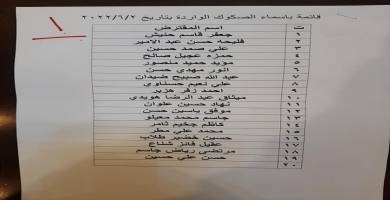 قائمة باسماء الصكوك الواردة بتاريخ ٢٠٢٢/٦/٢
١
ت اسم المقترض
١ جعفر قاسم حنيش
٢ فليحه حسن عبد الامير
٣ علي صمد حسين
٤ حمزه عجيل صالح
٥ مؤيد حميد منصور
٦ انور مهدي حسن
٧ عبد الله صبيح ضيدان
٨ علي نعيم حسناوي
٩ احمد زفر هزير
١٠ ميثاق عبد الرضا هويدي
١١ نهاد حسين علوان
١٢ موفق ياسين حسن
١٣ جاسم محمد معيلو
١٤ كاظم جخيم ثامر
١٥ محمد علي مطر
١٦ حسين خضير طلاب
١٧ عقيل فائز شناع
١٨ مرتضى رياض جاسم
١٩ حسن علي حسين
٢٠